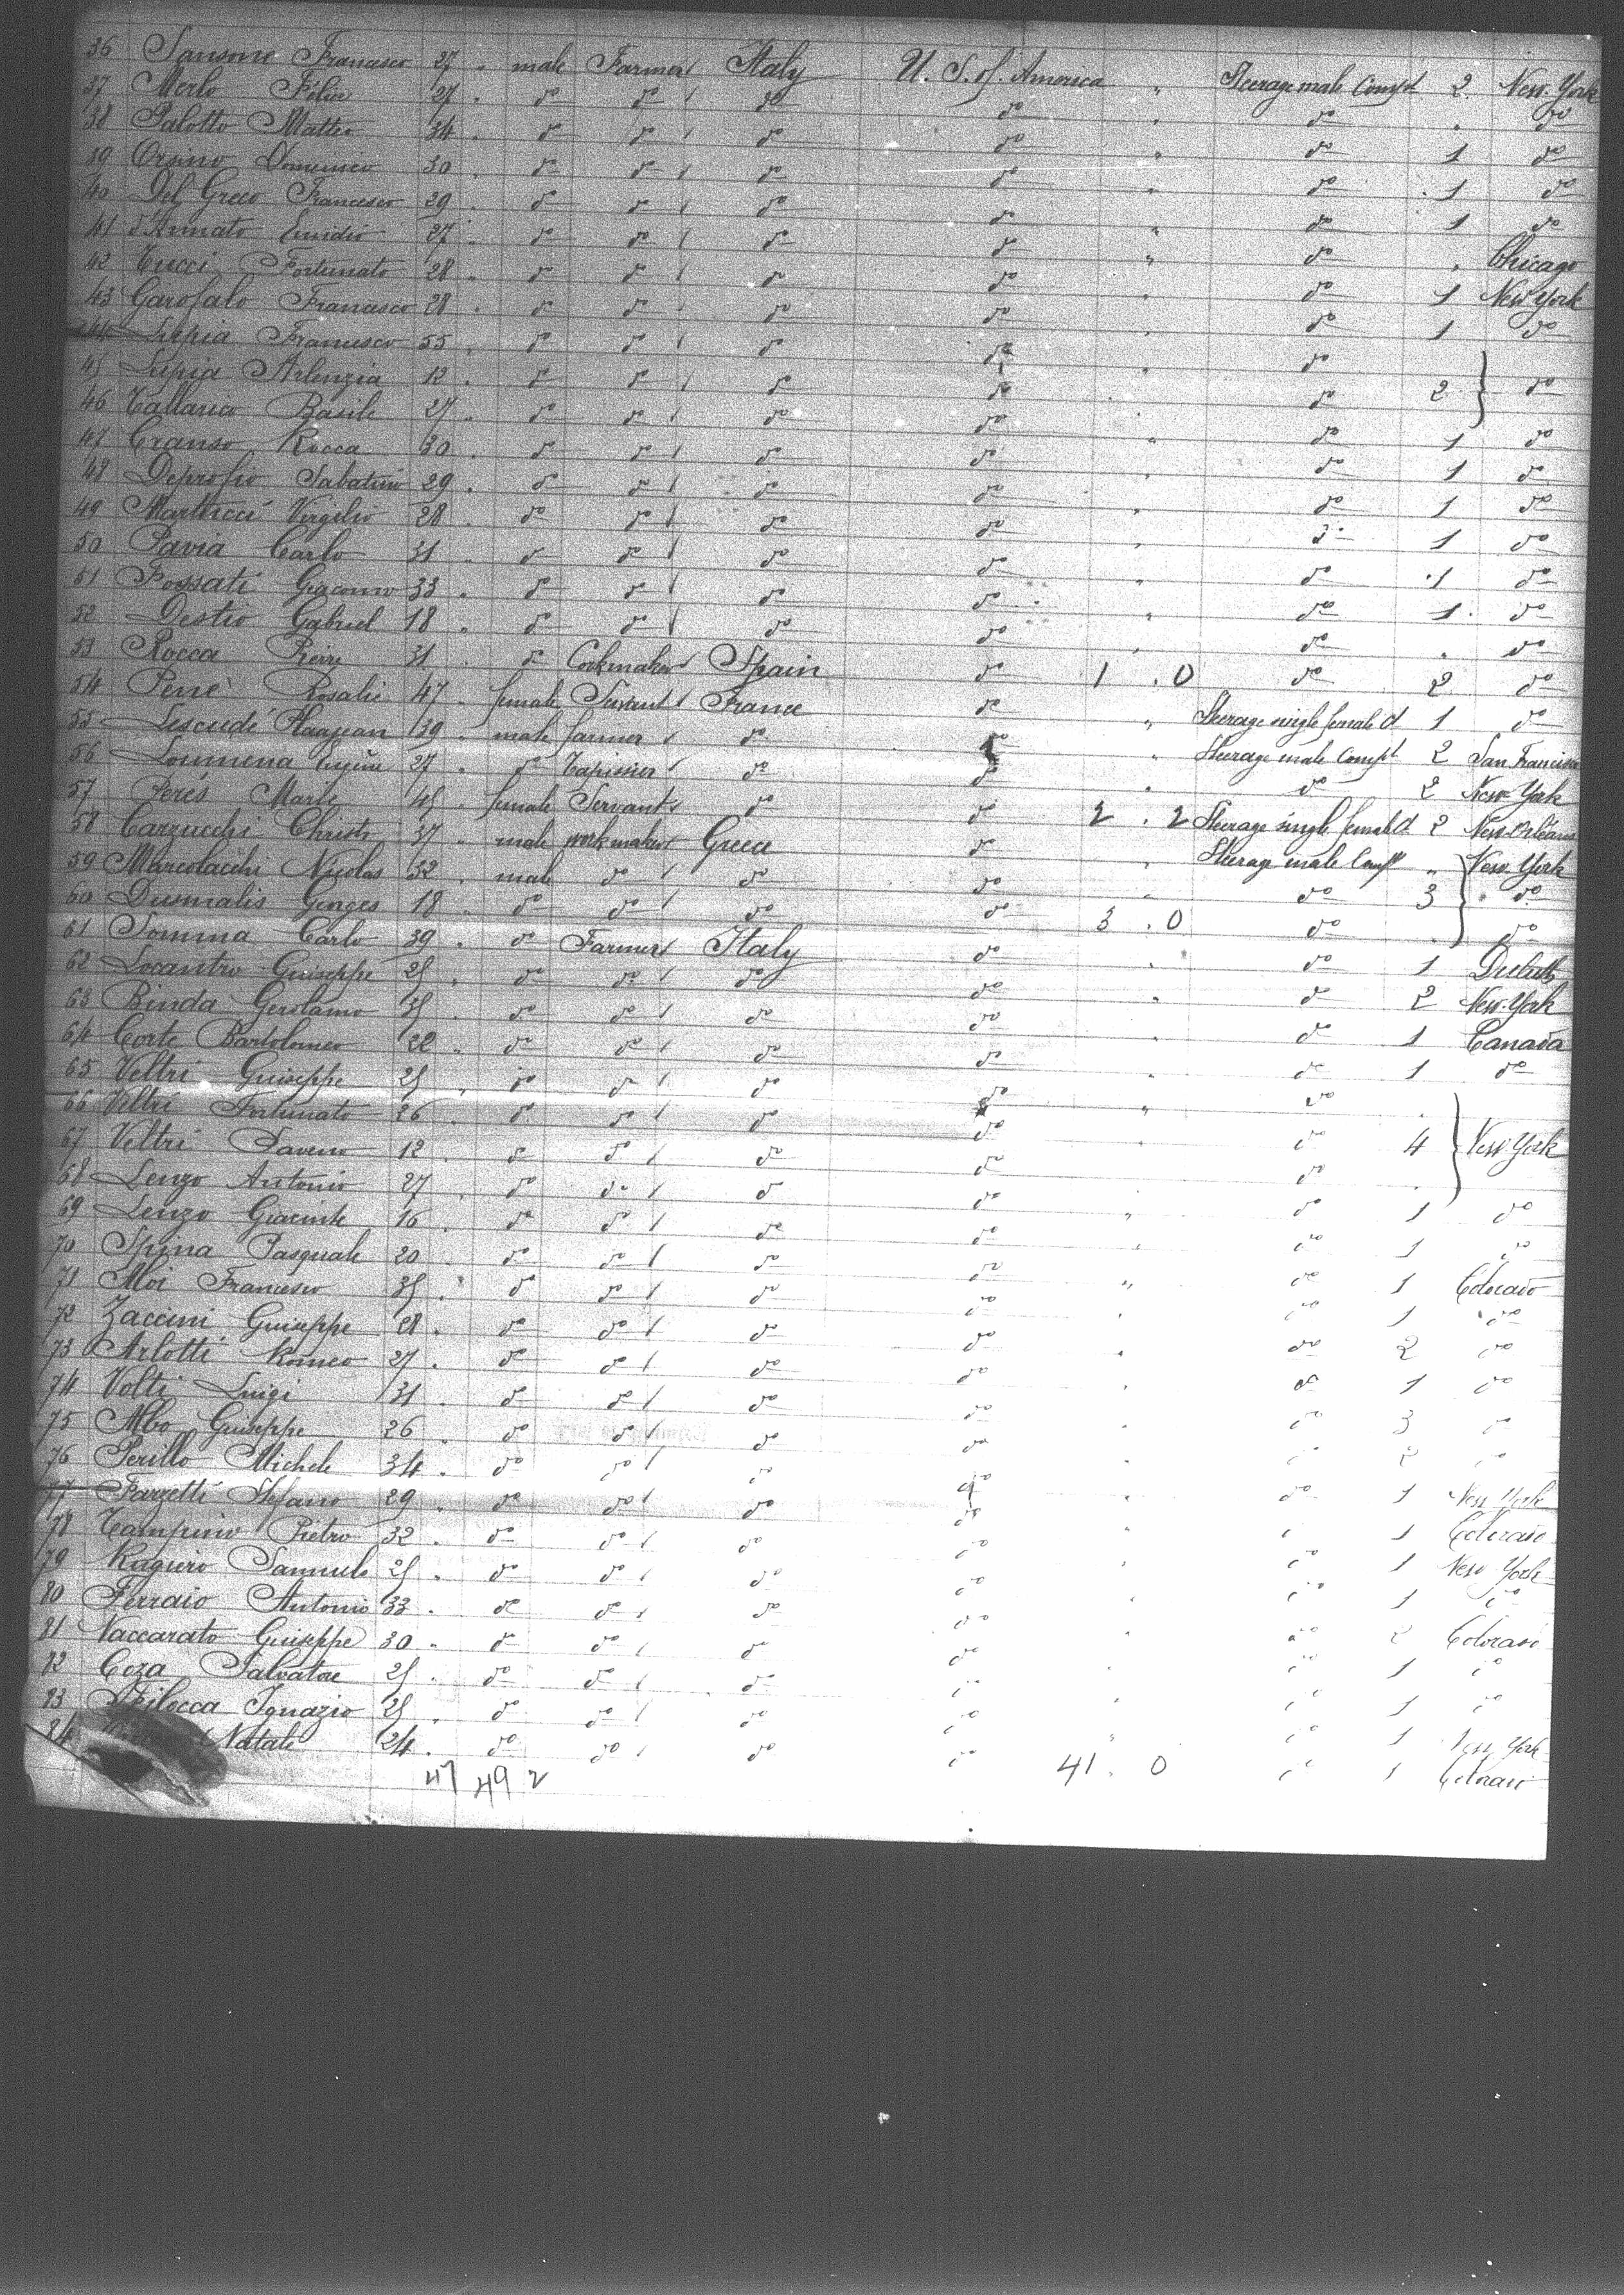 36 Sansone Francesco 27 " male Farmer Italy U. S. of. America " Steerage male Compt 2 New-York
37 Merlo Félix 27 " do do do do " do " do
38 Palotto Matteo 34 " do do do do " do 1 do
39 Orsino Domenico 30 " do do do do " do 1 do
40 Del Greco Francesco 29 " do do do do " do 1 do
41 d'Annato Emidio 27 " do do do do " do " Chicago
42 Tucci Fortunato 28 " do do do do " do 1 New York
43 Garofalo Francesco 28 " do do do do " do 1 do
44 Lupia Francesco 55 " do do do do " do
45 Lupia Arlenzia 12 " do do do do " do 2 do
46 Tallarico Basile 27 " do do do do " do 1 do
47 Cranso Rocca 30 " do do do do " do 1 do
48 Deprofio Sabatino 29 " do do do do " do 1 do
49 Martucci Virgilio 28 " do do do do " do 1 do
50 Pavia Carlo 31 " do do do do " do 1 do
51 Fossati Giacomo 33 " do do do do " do 1 do
52 Destio Gabriel 18 " do do do do " do " do
53 Rocca Pierre 31 " do Corkmaker Spain do 1 . 0 do 2 do
54 Pene Rosalie 47 " female Servant France do " Steerage single female d 1 do
55 Lescudé 39 " male farmer do do " Steerage male Compt 2 San Francisco
56 Loumena Eugène 27 " do Tapissier do do " do 2 New York
57 Perés Marie 45 " female Servant do do 2 . 2 Steerage single female d 2 New-Orléans
58 Carzucchi Christi 37 " male workmaker Greece do " Steerage male Compt " New York
59 Marcolacchi Nicolas 32 " male do do do " do 3 do
60 Dusmalis Georges 18 " do do do do 3 . 0 do " do
61 Somma Carlo 39 " do Farmer Italy do " do 1
62 Locantro Guiseppe 25 " do do do do " do 2 New-York
63 Binda Gerolamo 35 " do do do do " do 1 Canada
64 Corte Bartolomeo 22 " do do do do " do 1 do
65 Veltri Guiseppe 25 " do do do do " do
66 Veltri Fortunato 26 " do do do do " do 4 New York
67 Veltri Saverio 12 " do do do do " do
68 Lenzo Antonio 27 " do do do do " do 1 do
69 Lenzo Giacinte 16 " do do do do " do 1 do
70 Spina Pasquale 20 " do do do do " do 1 Colorado
71 Moi Francesco 35 " do do do do " do 1 do
72 Zaccini Guiseppe 28 " do do do do " do 2 do
73 Arlotti Romeo 27 " do do do do " do 1 do
74 Volti Luigi 31 " do do do do " do 3 do
75 Mbo Guiseppe 26 " do do do do " do 2 do
76 Perillo Michele 34 " do do do do " do 1 New York
77 Farzetti Stefano 29 " do do do do " do 1 Colorado
78 Tampino Pietro 32 " do do do do " do 1 New York
79 Ragiero Samuele 25 " do do do do " do 1 do
80 Ferraio Antonio 33 " do do do do " do 2 Colorado
81 Vaccarato Guiseppe 30 " do do do do " do 1 do
82 Coza Salvatore 25 " do do do do " do 1 do
83 Filocca Ignazio 25 " do do do do " do 1 New York
84 Natale 24 " do do do do 41 . 0 do 1 Colorado
47 49 2